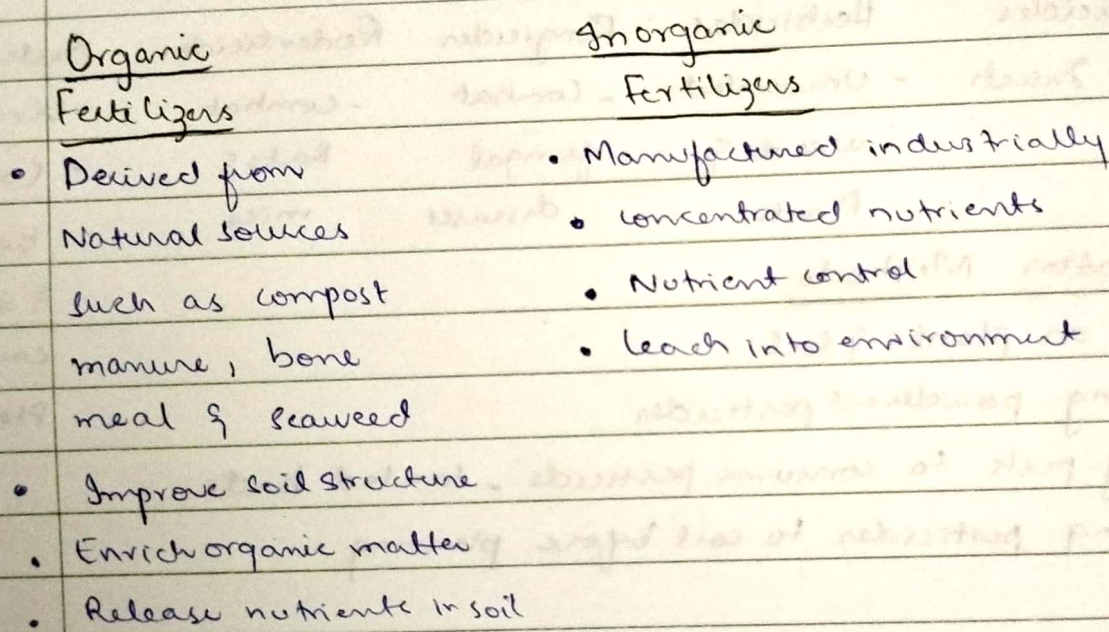 Organic
Fertilizers
• Derived from
Natural sources
such as compost
manure, bone
meal & seaweed
• Improve soil structure
• Enrich organic matter
• Release nutrients in soil
Inorganic
Fertilizers
• Manufactured industrially
• concentrated nutrients
• Nutrient control
• leach into environment